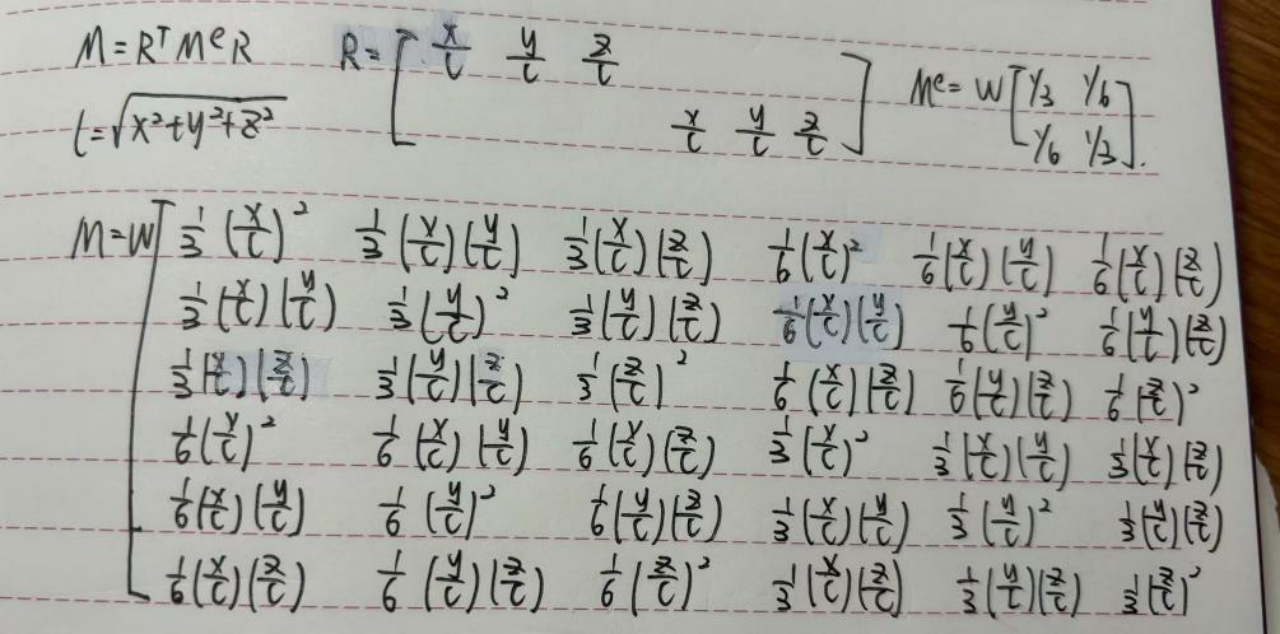 M = RᵀMᵉR R = [ x/L y/L z/L
x/L y/L z/L ] Mᵉ = W [ 1/3 1/6
L = √(x²+y²+z²) 1/6 1/3 ].
M = W [ 1/3 (x/L)² 1/3 (x/L)(y/L) 1/3 (x/L)(z/L) 1/6 (x/L)² 1/6 (x/L)(y/L) 1/6 (x/L)(z/L)
1/3 (x/L)(y/L) 1/3 (y/L)² 1/3 (y/L)(z/L) 1/6 (x/L)(y/L) 1/6 (y/L)² 1/6 (y/L)(z/L)
1/3 (x/L)(z/L) 1/3 (y/L)(z/L) 1/3 (z/L)² 1/6 (x/L)(z/L) 1/6 (y/L)(z/L) 1/6 (z/L)²
1/6 (x/L)² 1/6 (x/L)(y/L) 1/6 (x/L)(z/L) 1/3 (x/L)² 1/3 (x/L)(y/L) 1/3 (x/L)(z/L)
1/6 (x/L)(y/L) 1/6 (y/L)² 1/6 (y/L)(z/L) 1/3 (x/L)(y/L) 1/3 (y/L)² 1/3 (y/L)(z/L)
1/6 (x/L)(z/L) 1/6 (y/L)(z/L) 1/6 (z/L)² 1/3 (x/L)(z/L) 1/3 (y/L)(z/L) 1/3 (z/L)²